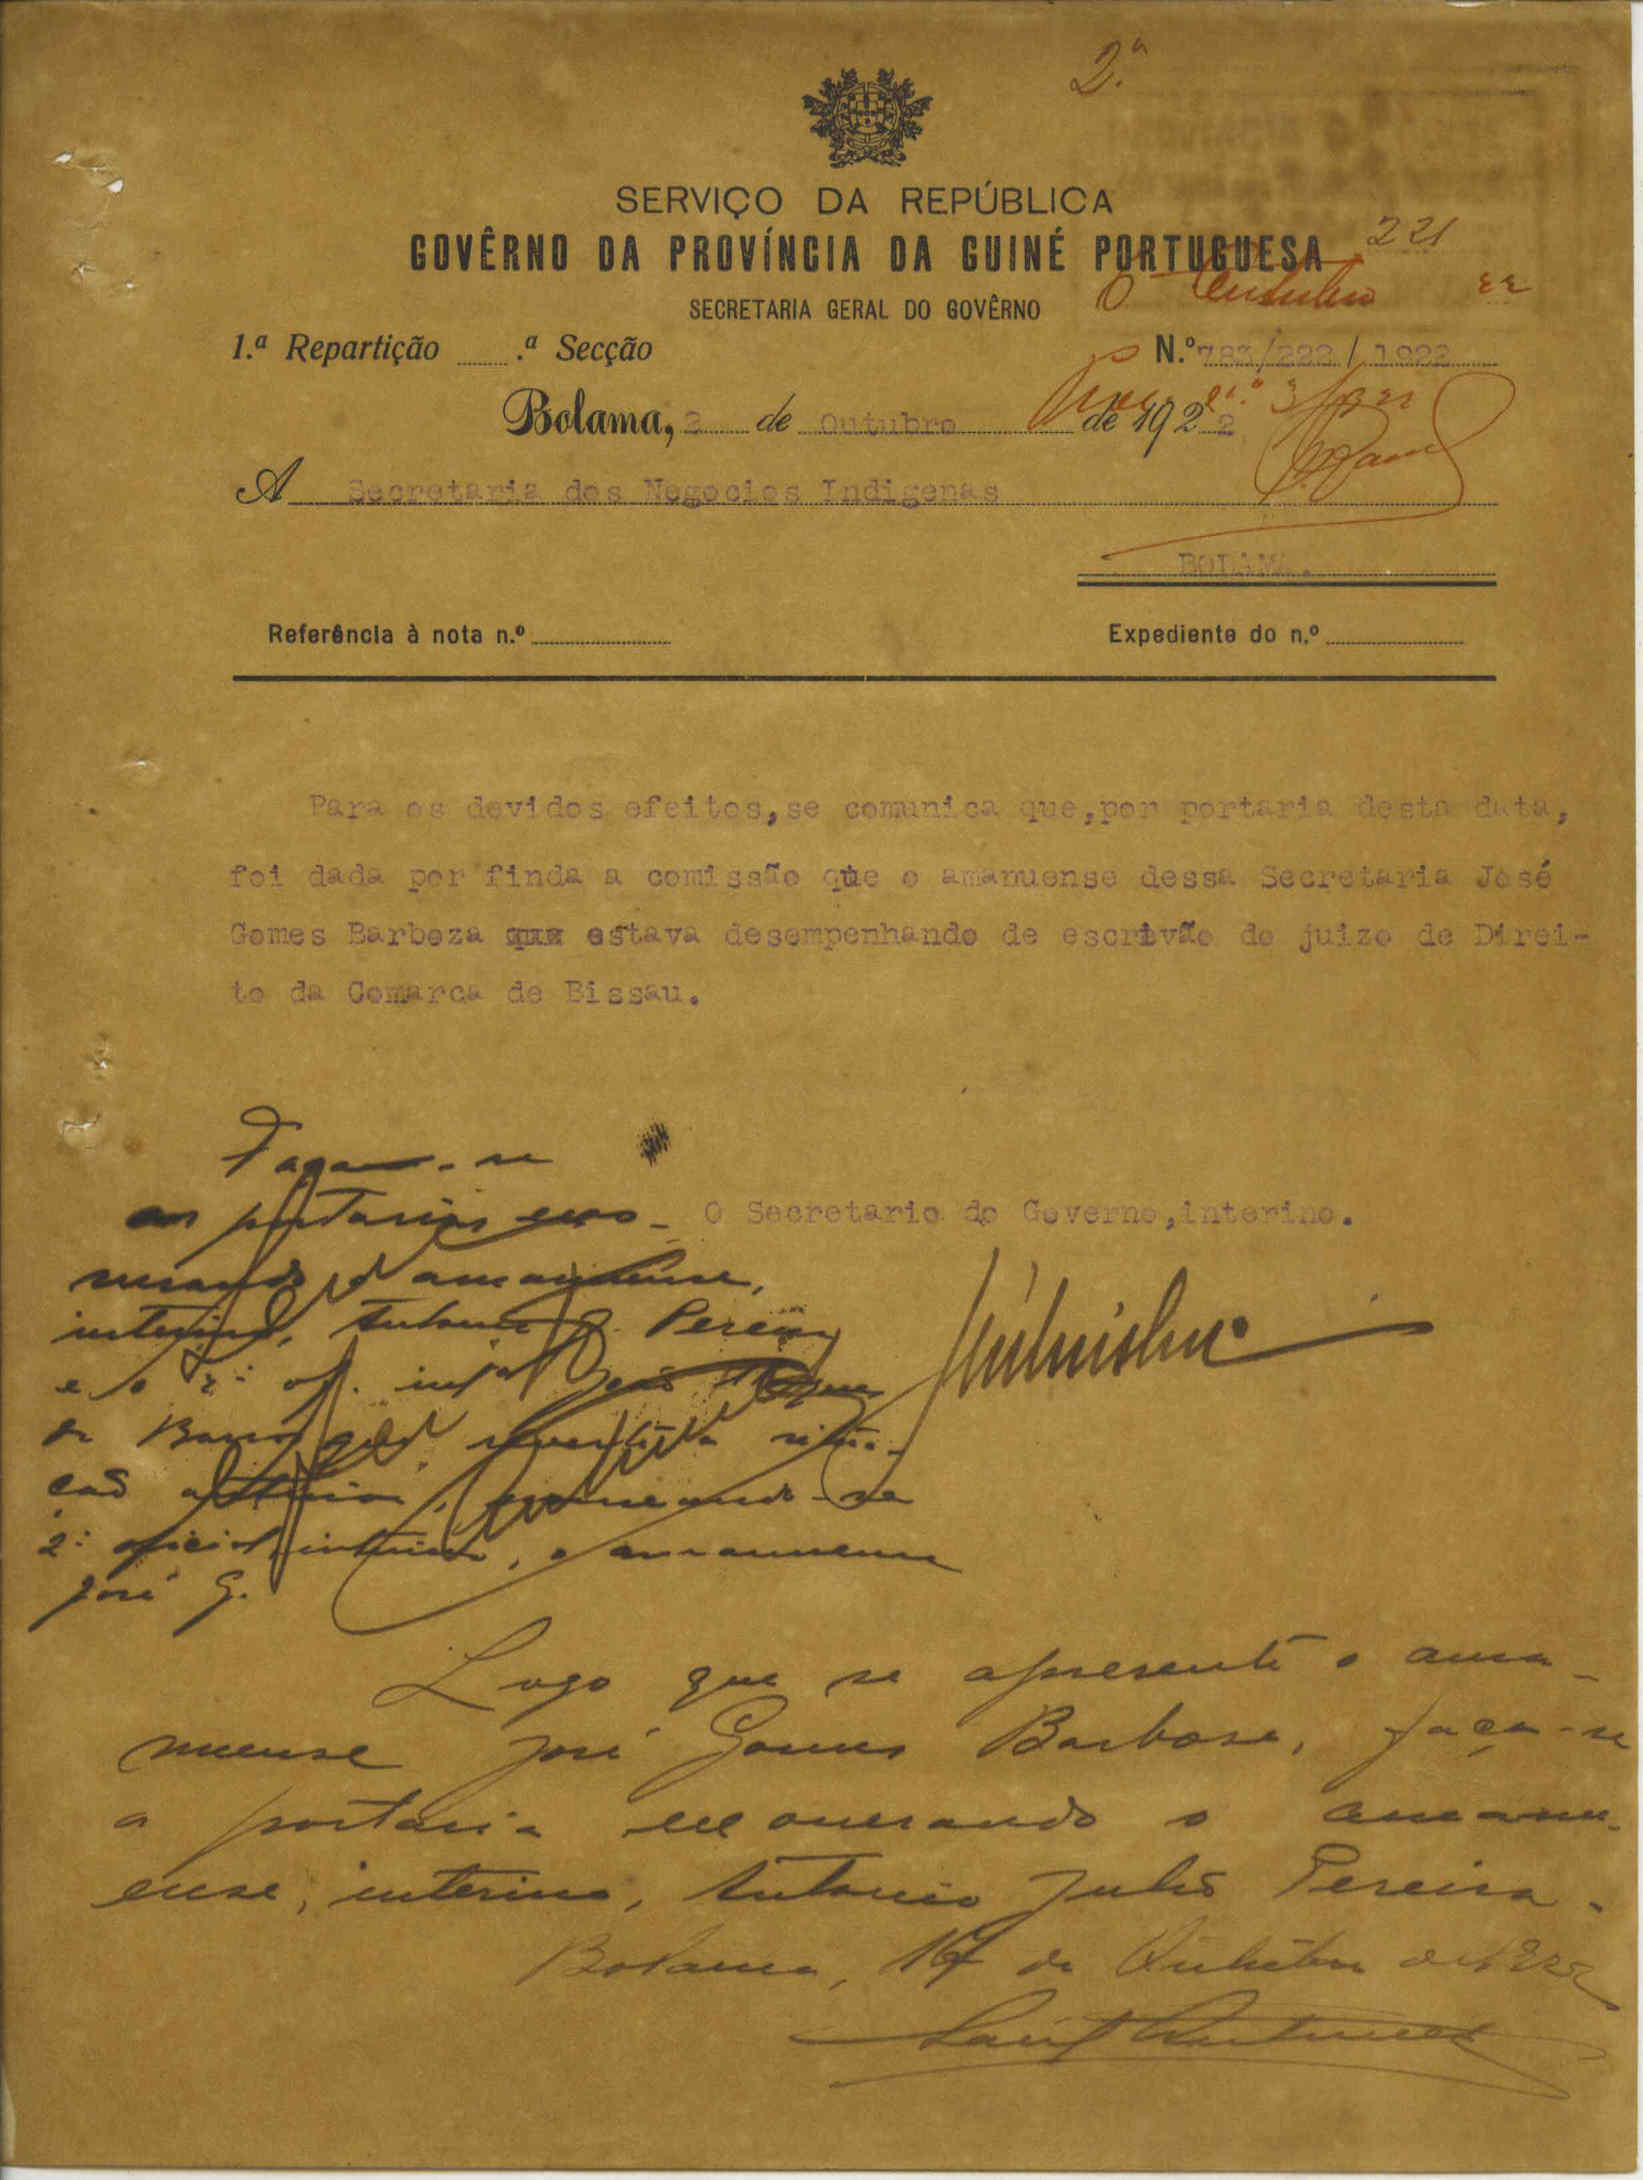 2.ª
SERVIÇO DA REPÚBLICA
GOVÊRNO DA PROVÍNCIA DA GUINÉ PORTUGUESA
221
6 Outubro 22
SECRETARIA GERAL DO GOVÊRNO
1.ª Repartição .ª Secção
N.º 783/222/1922
Bolama, 3 de Outubro de 1922
A Secretaria dos Negocios Indigenas
BOLAMA.
Referência à nota n.º
Expediente do n.º
Para os devidos efeitos,se comunica que,por portaria desta data,
foi dada por finda a comissão que o amanuense dessa Secretaria José
Gomes Barboza que estava desempenhando de escrivão do juizo de Direi-
to da Comarca de Bissau.
Façam-se
as portarias exo-
nerando o amanuense,
interino, Antonio J. Pereira
e o 2.º of. int.º João
de Barros
2.º oficial, interino, o amanuense
José G.
O Secretario do Governo,interino.
Logo que se apresente o ama-
nuense José Gomes Barbosa, faça-se
a portaria exonerando o amanu-
ense, interino, Antonio Julio Pereira.
Bolama, de Outubro de 1922